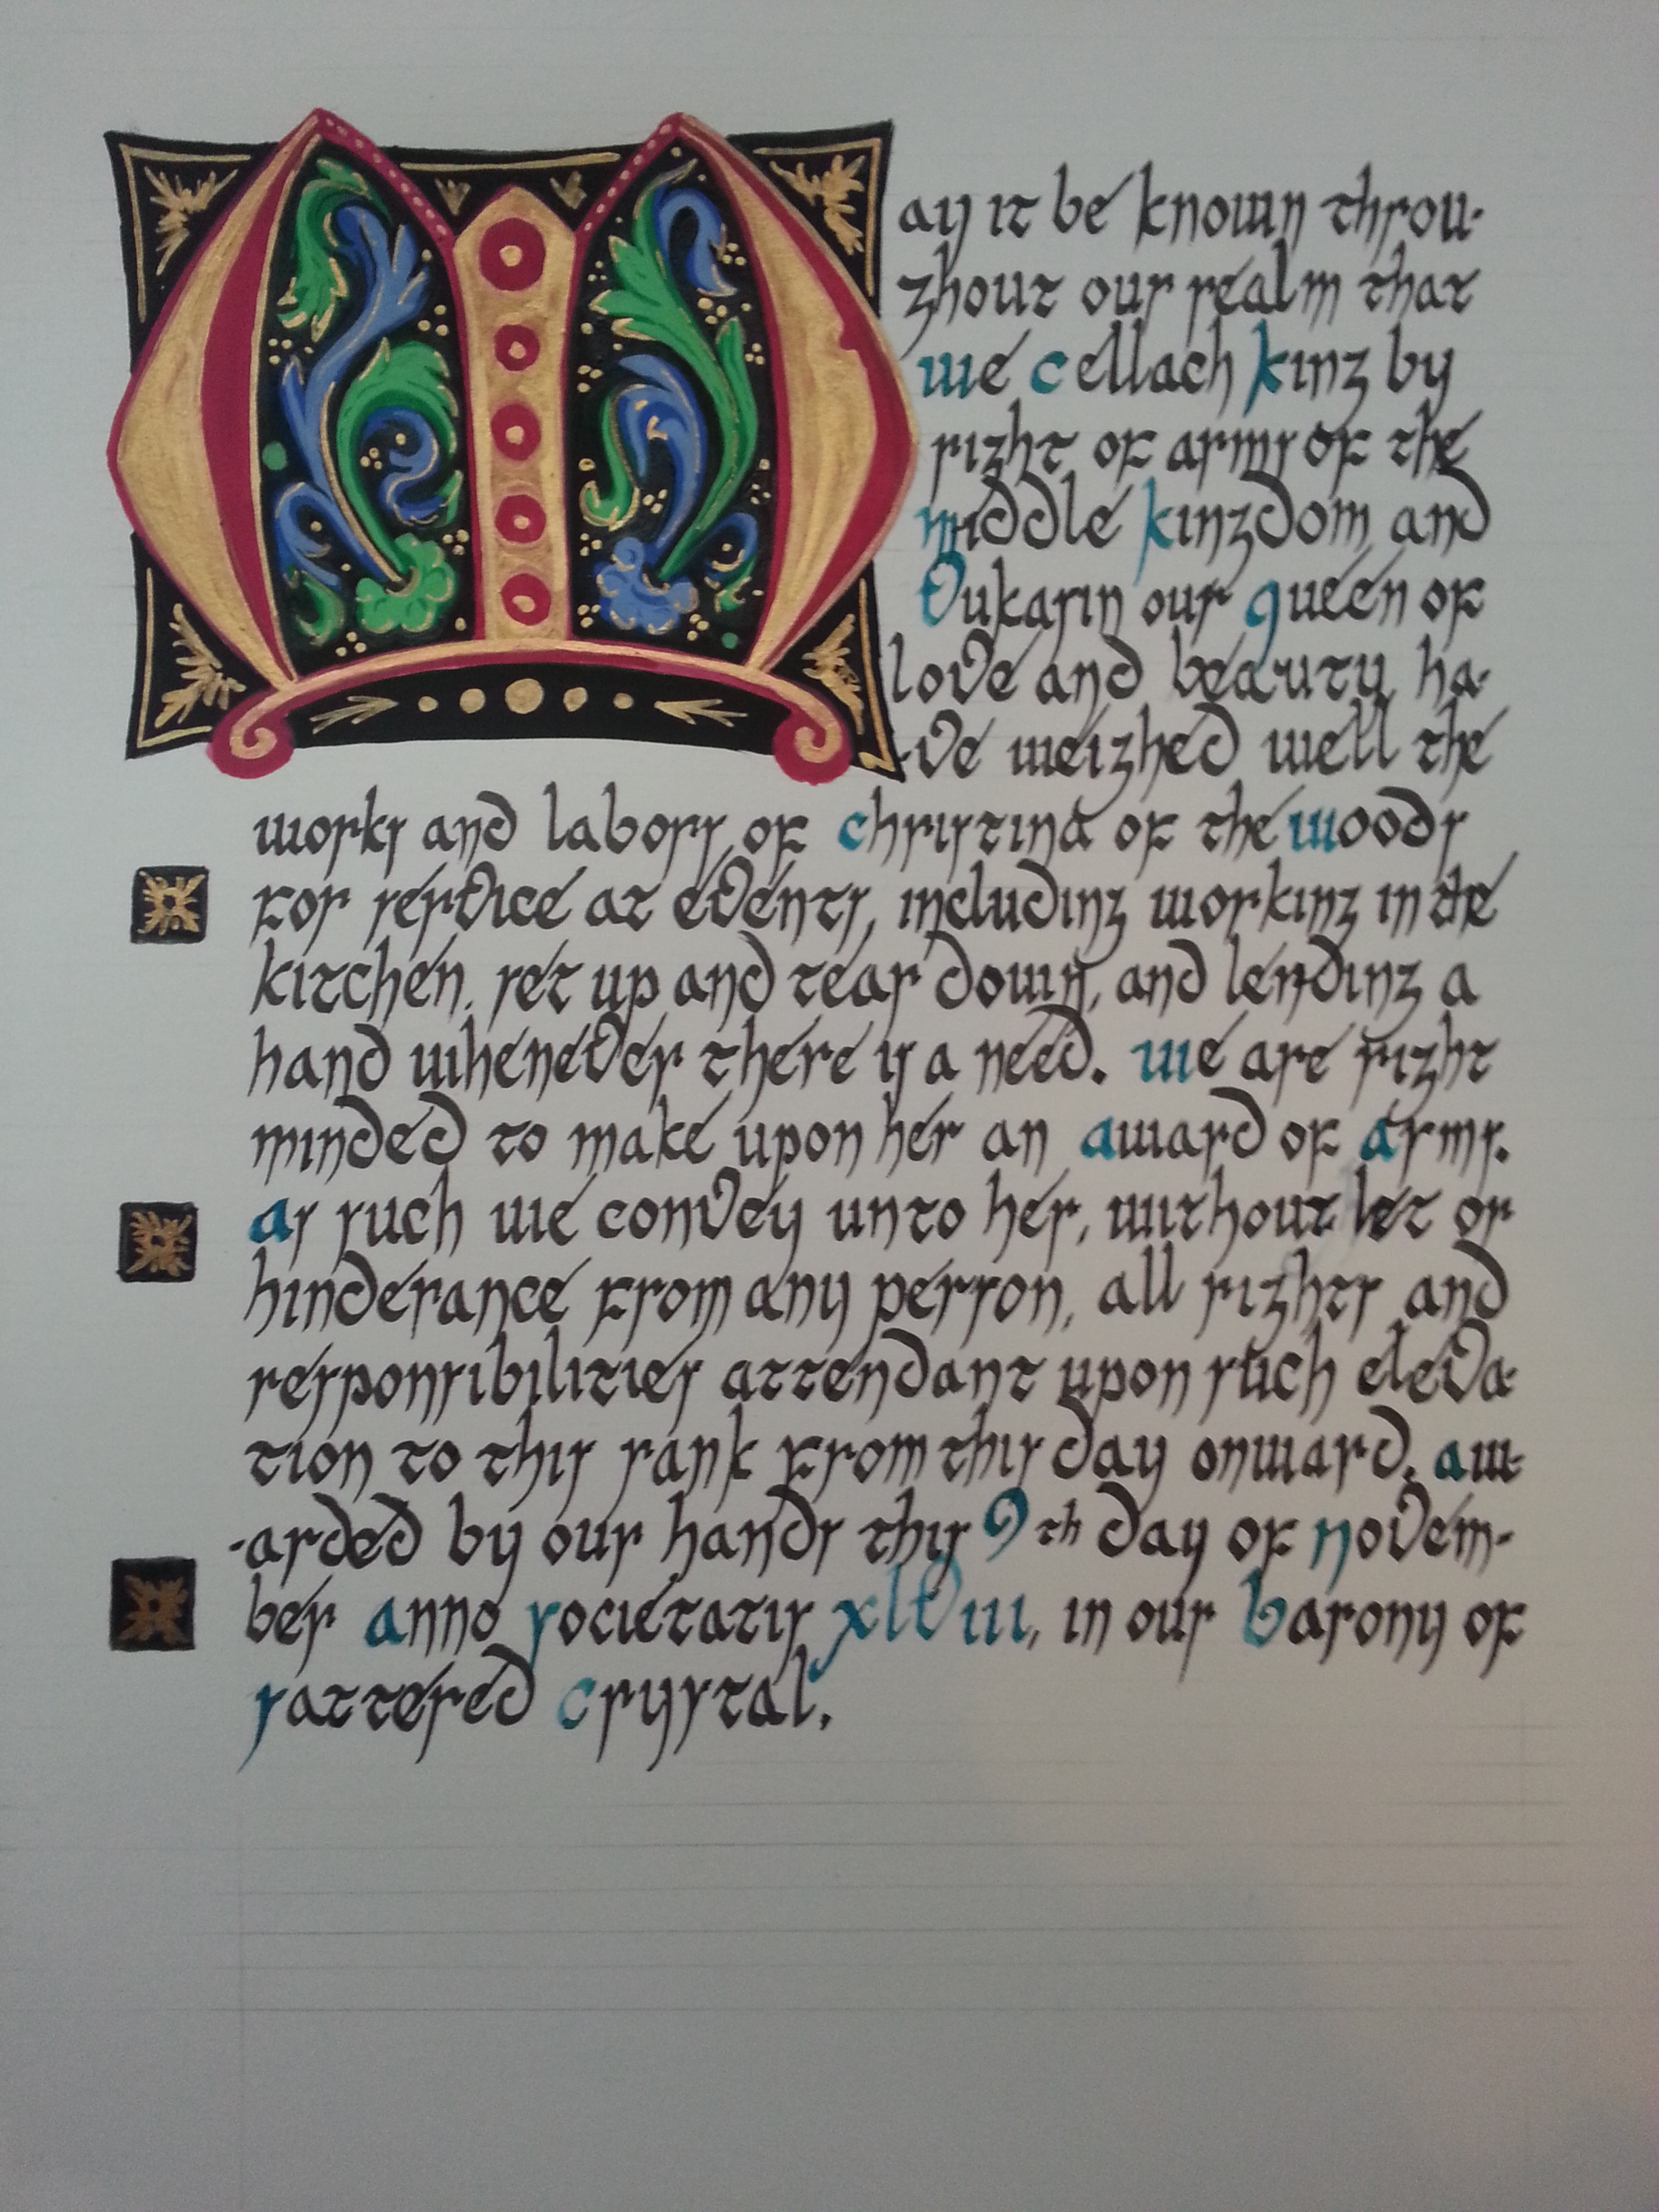 May it be known throu-
ghout our realm that
we cellach king by
right of arms of the
middle kingdom and
Vukasin our queen of
love and beauty ha-
-ve weighed well the
works and labors of christina of the woods
for service at events, including working in the
kitchen, set up and tear down, and lending a
hand whenever there is a need. we are right
minded to make upon her an award of arms.
as such we convey unto her, without let or
hinderance from any person, all rights and
responsibilities attendant upon such eleva-
tion to this rank from this day onward. aw-
-arded by our hands this 9th day of novem-
ber anno societatis xlviii, in our barony of
sattered crystal.